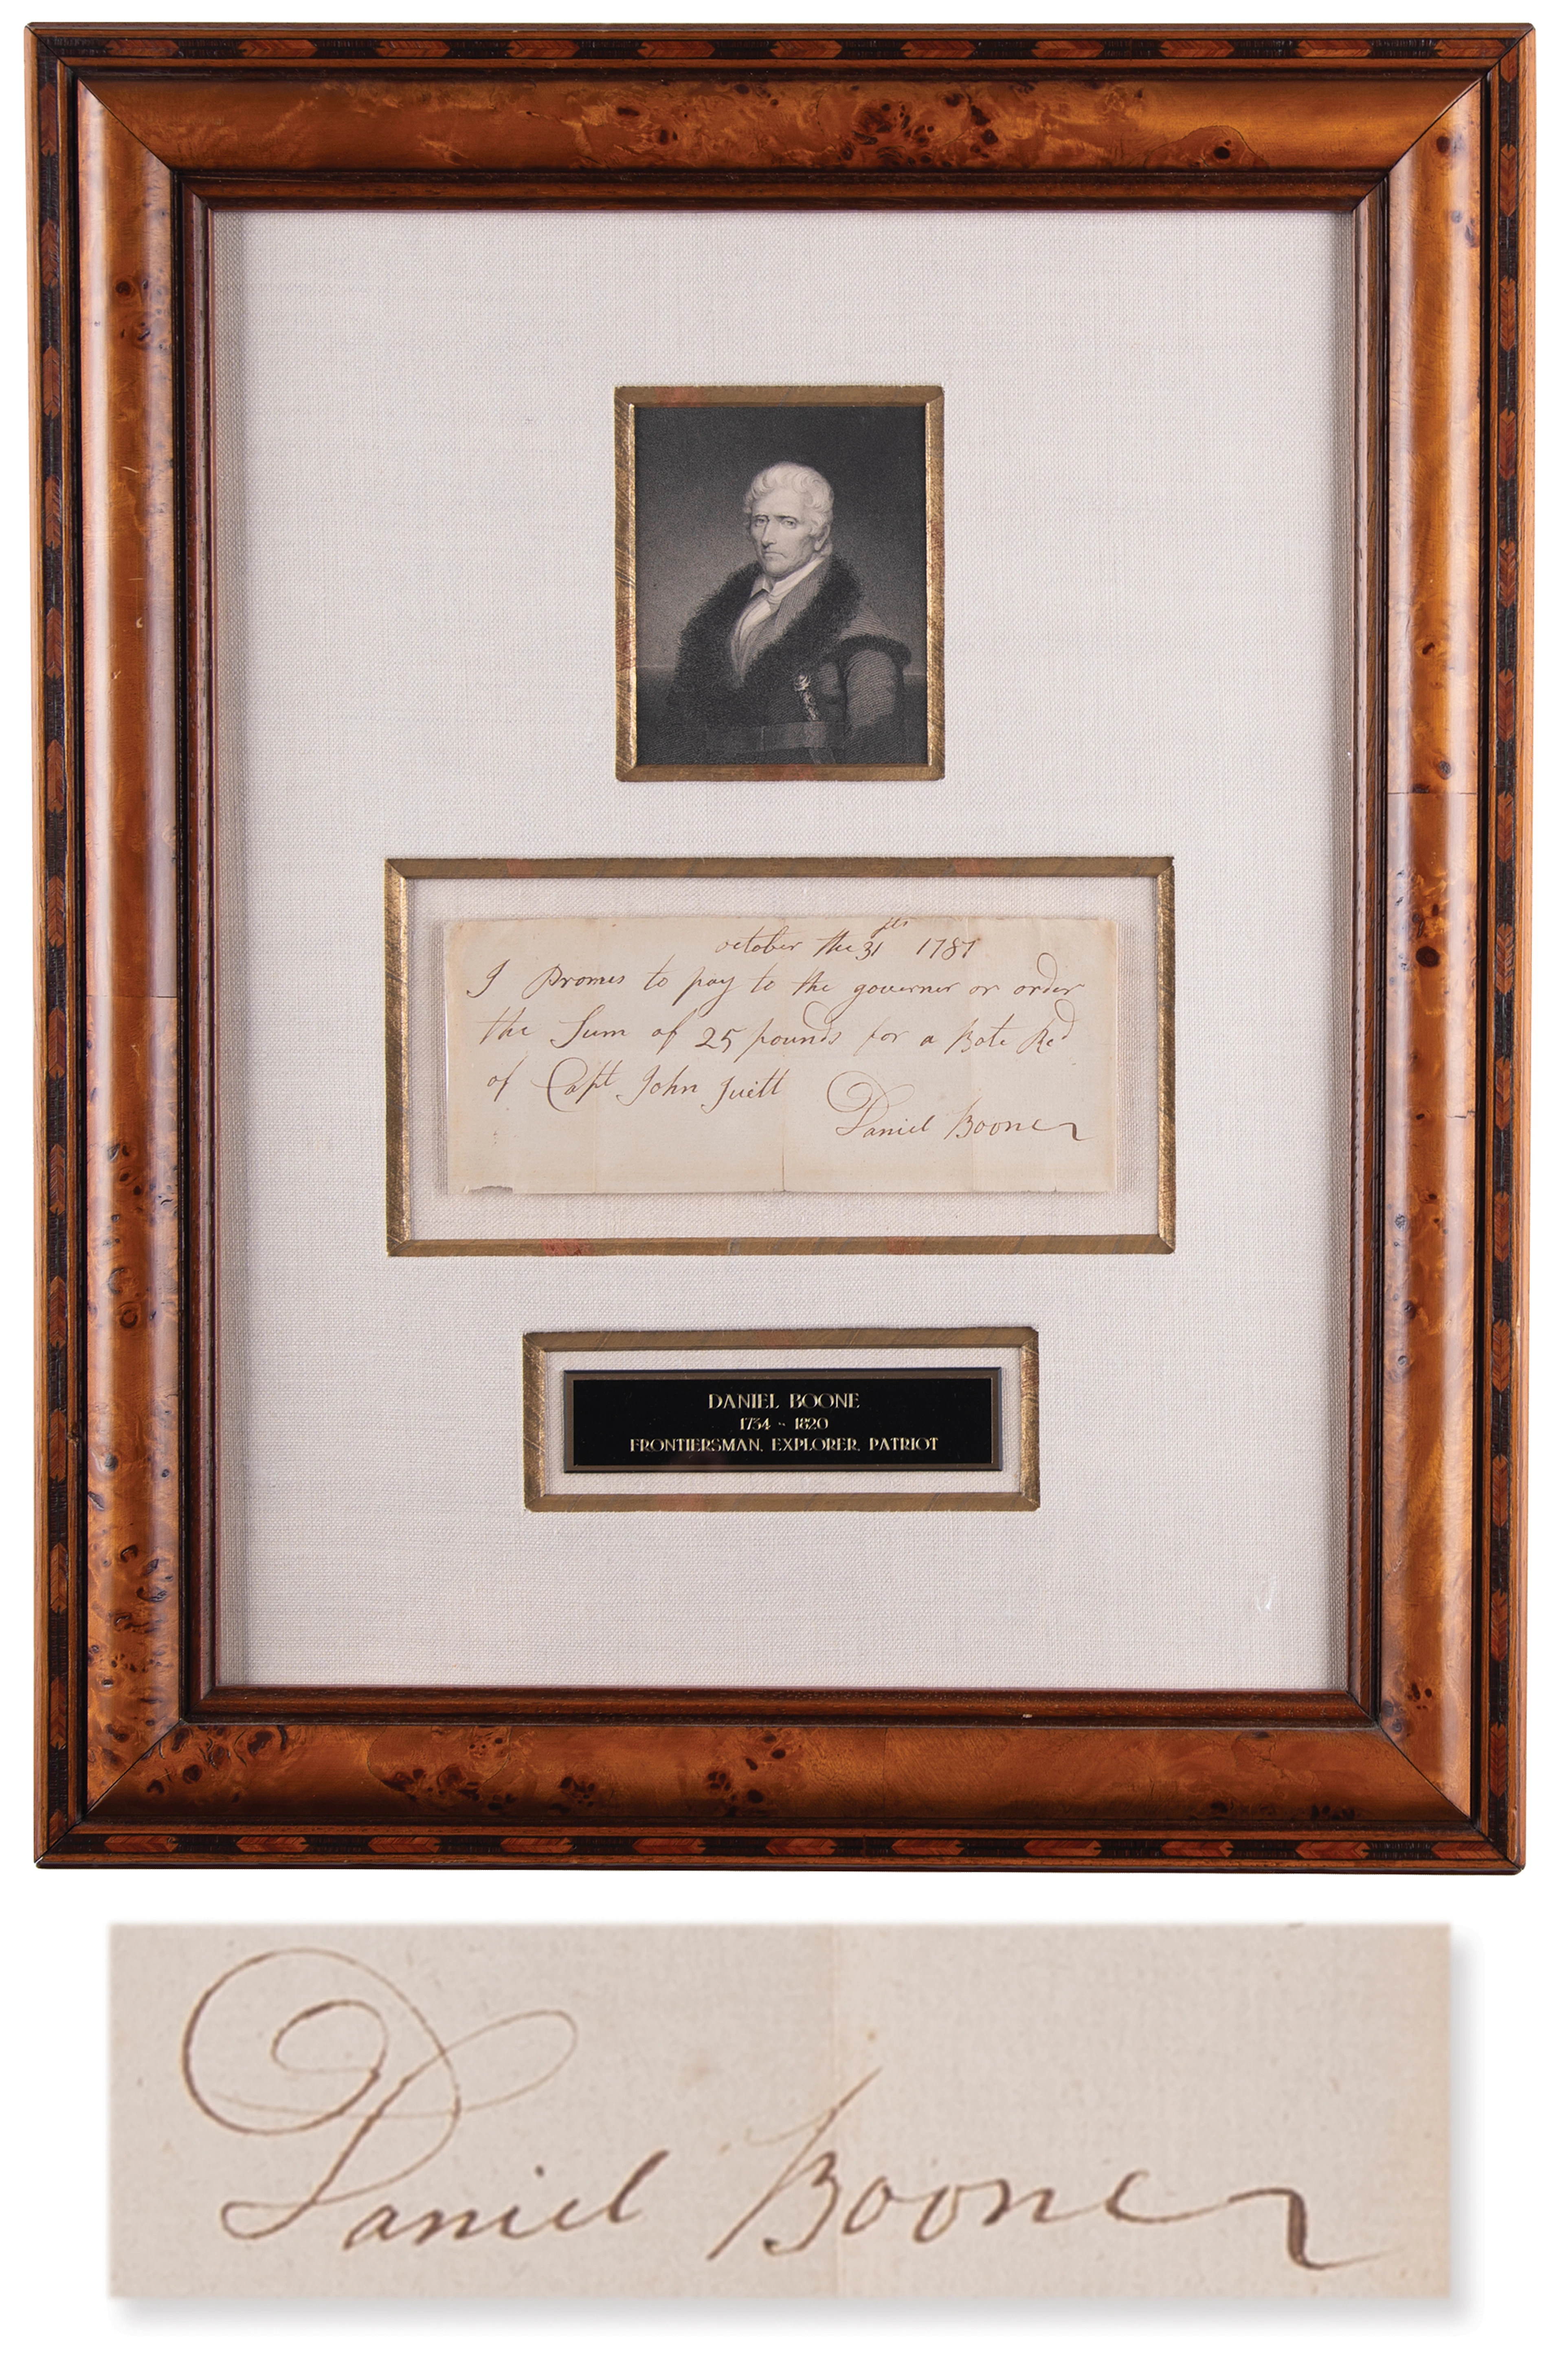 october the 31 1787
I Promes to pay to the governer or order
the Sum of 25 pounds for a Bote Red
of Capt John Juitt
Daniel Boone
DANIEL BOONE
1734 - 1820
FRONTIERSMAN, EXPLORER, PATRIOT
Daniel Boone